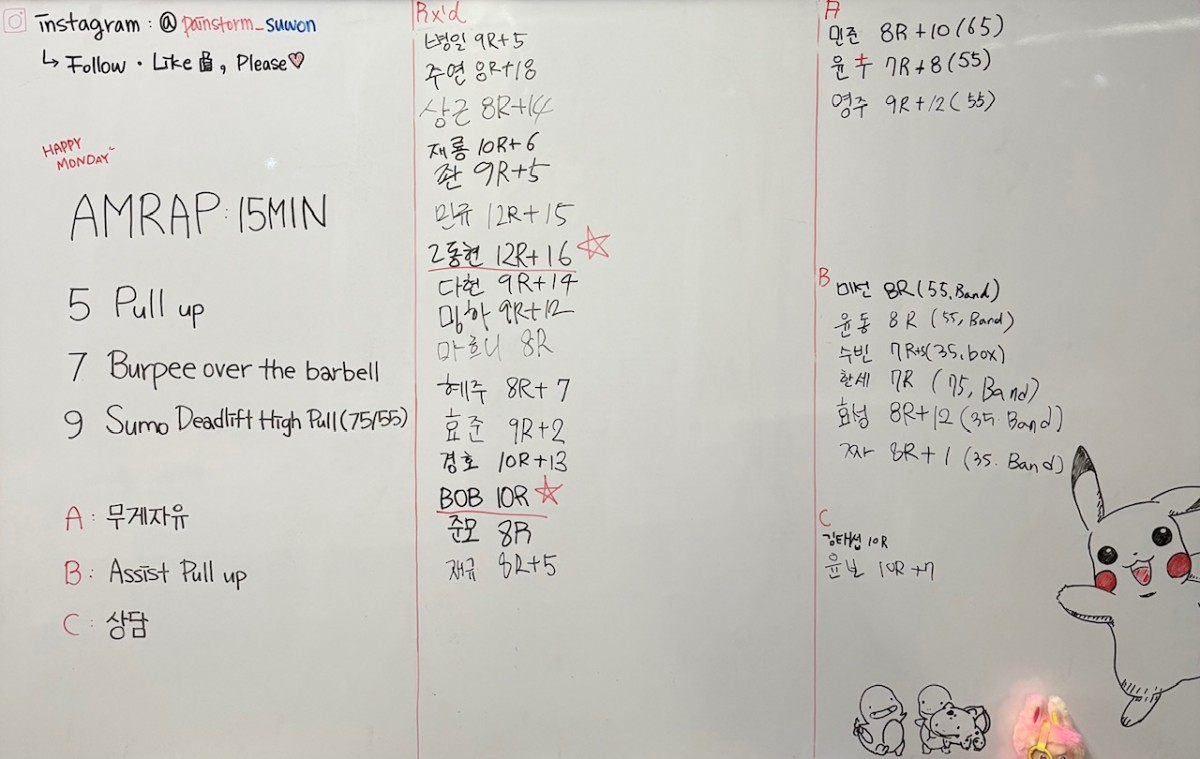 instagram : @painstorm_suwon
↳ Follow · Like 👍, Please♡
HAPPY
MONDAY~
AMRAP : 15MIN
5 Pull up
7 Burpee over the barbell
9 Sumo Deadlift High Pull (75/55)
A : 무게자유
B : Assist Pull up
C : 상담
Rx'd
병일 9R+5
주연 8R+18
상근 8R+14
재룡 10R+6
좐 9R+5
민규 12R+15
동현 12R+16 ☆
다현 9R+14
밍하 9R+12
마르니 8R
혜주 8R+7
효준 9R+2
경호 10R+13
BOB 10R ☆
준모 8R
재규 8R+5
A
민준 8R+10 (65)
윤수 7R+8 (55)
영주 9R+12 (55)
B
미선 8R (55, Band)
윤동 8R (55, Band)
수빈 7R+5 (35, box)
환세 7R (75, Band)
효성 8R+12 (35. Band)
짜 8R+1 (35. Band)
C
김태섭 10R
윤보 10R+7